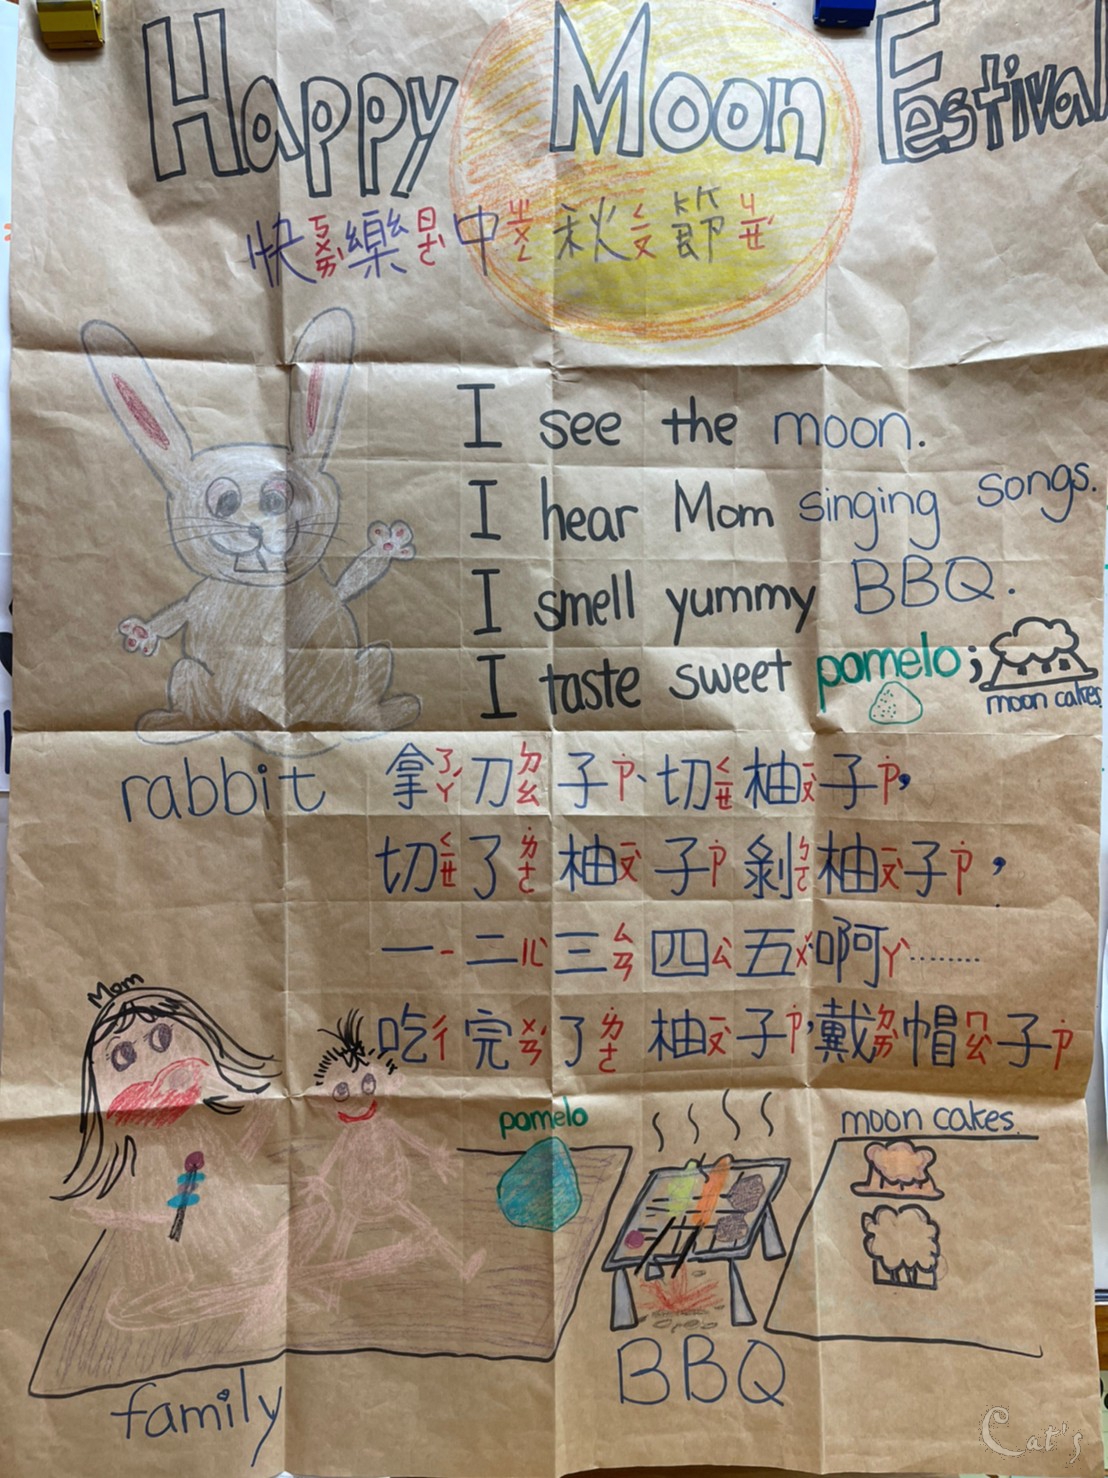 Happy Moon Festival
快ㄎㄨㄞˋ樂ㄌㄜˋ中ㄓㄨㄥ秋ㄑㄧㄡ節ㄐㄧㄝˊ
I see the moon.
I hear Mom singing songs.
I smell yummy BBQ.
I taste sweet pomelo;
moon cakes
rabbit
拿ㄋㄚˊ刀ㄉㄠ子ㄗ˙切ㄑㄧㄝ柚ㄧㄡˋ子ㄗ˙,
切ㄑㄧㄝ了ㄌㄜ˙柚ㄧㄡˋ子ㄗ˙剝ㄅㄛ柚ㄧㄡˋ子ㄗ˙,
一ㄧ二ㄦˋ三ㄙㄢ四ㄙˋ五ㄨˇ啊ㄚˋ........
吃ㄔ完ㄨㄢˊ了ㄌㄜ˙柚ㄧㄡˋ子ㄗ˙,戴ㄉㄞˋ帽ㄇㄠˋ子ㄗ˙
Mom
pomelo
moon cakes.
BBQ
family
Cat's